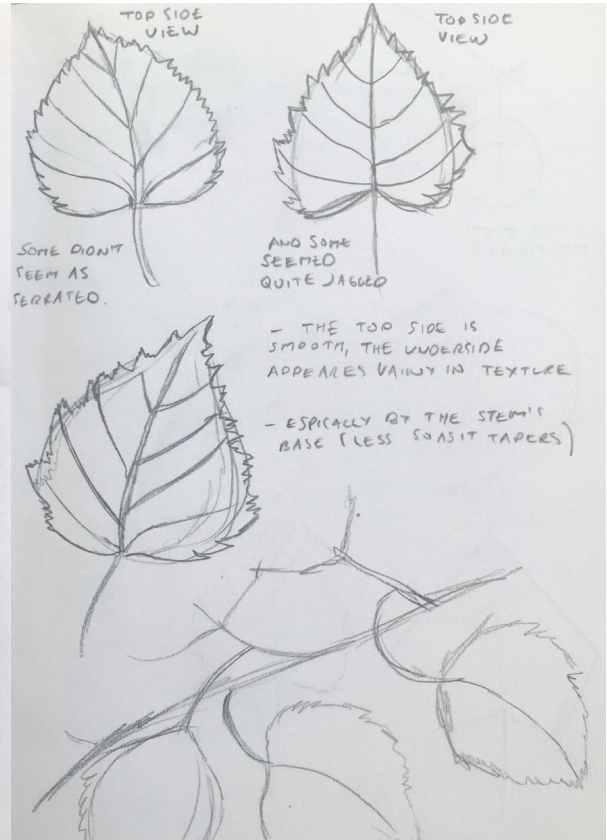 TOP SIDE
VIEW
TOP SIDE
VIEW
SOME DIDN'T
SEEM AS
SERRATED.
AND SOME
SEEMED
QUITE JAGGED
- THE TOP SIDE IS
SMOOTH, THE UNDERSIDE
APPEARES VAINY IN TEXTURE
- ESPICALLY BY THE STEM'S
BASE (LESS SO AS IT TAPERS)